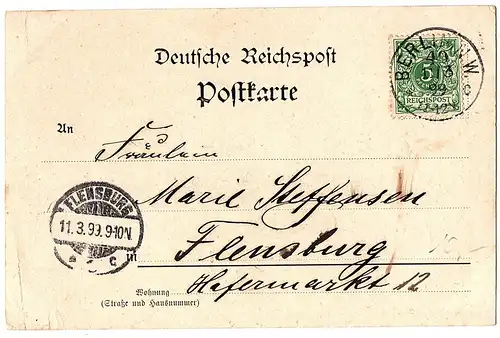 Deutsche Reichspost
Postkarte
BERLIN N.W.
40
99
5
REICHSPOST
An
Fräulein
Marie Steffensen
FLENSBURG
11.3.99. 9-10N.
c
in
Flensburg
Hafermarkt 12
Wohnung
(Straße und Hausnummer)